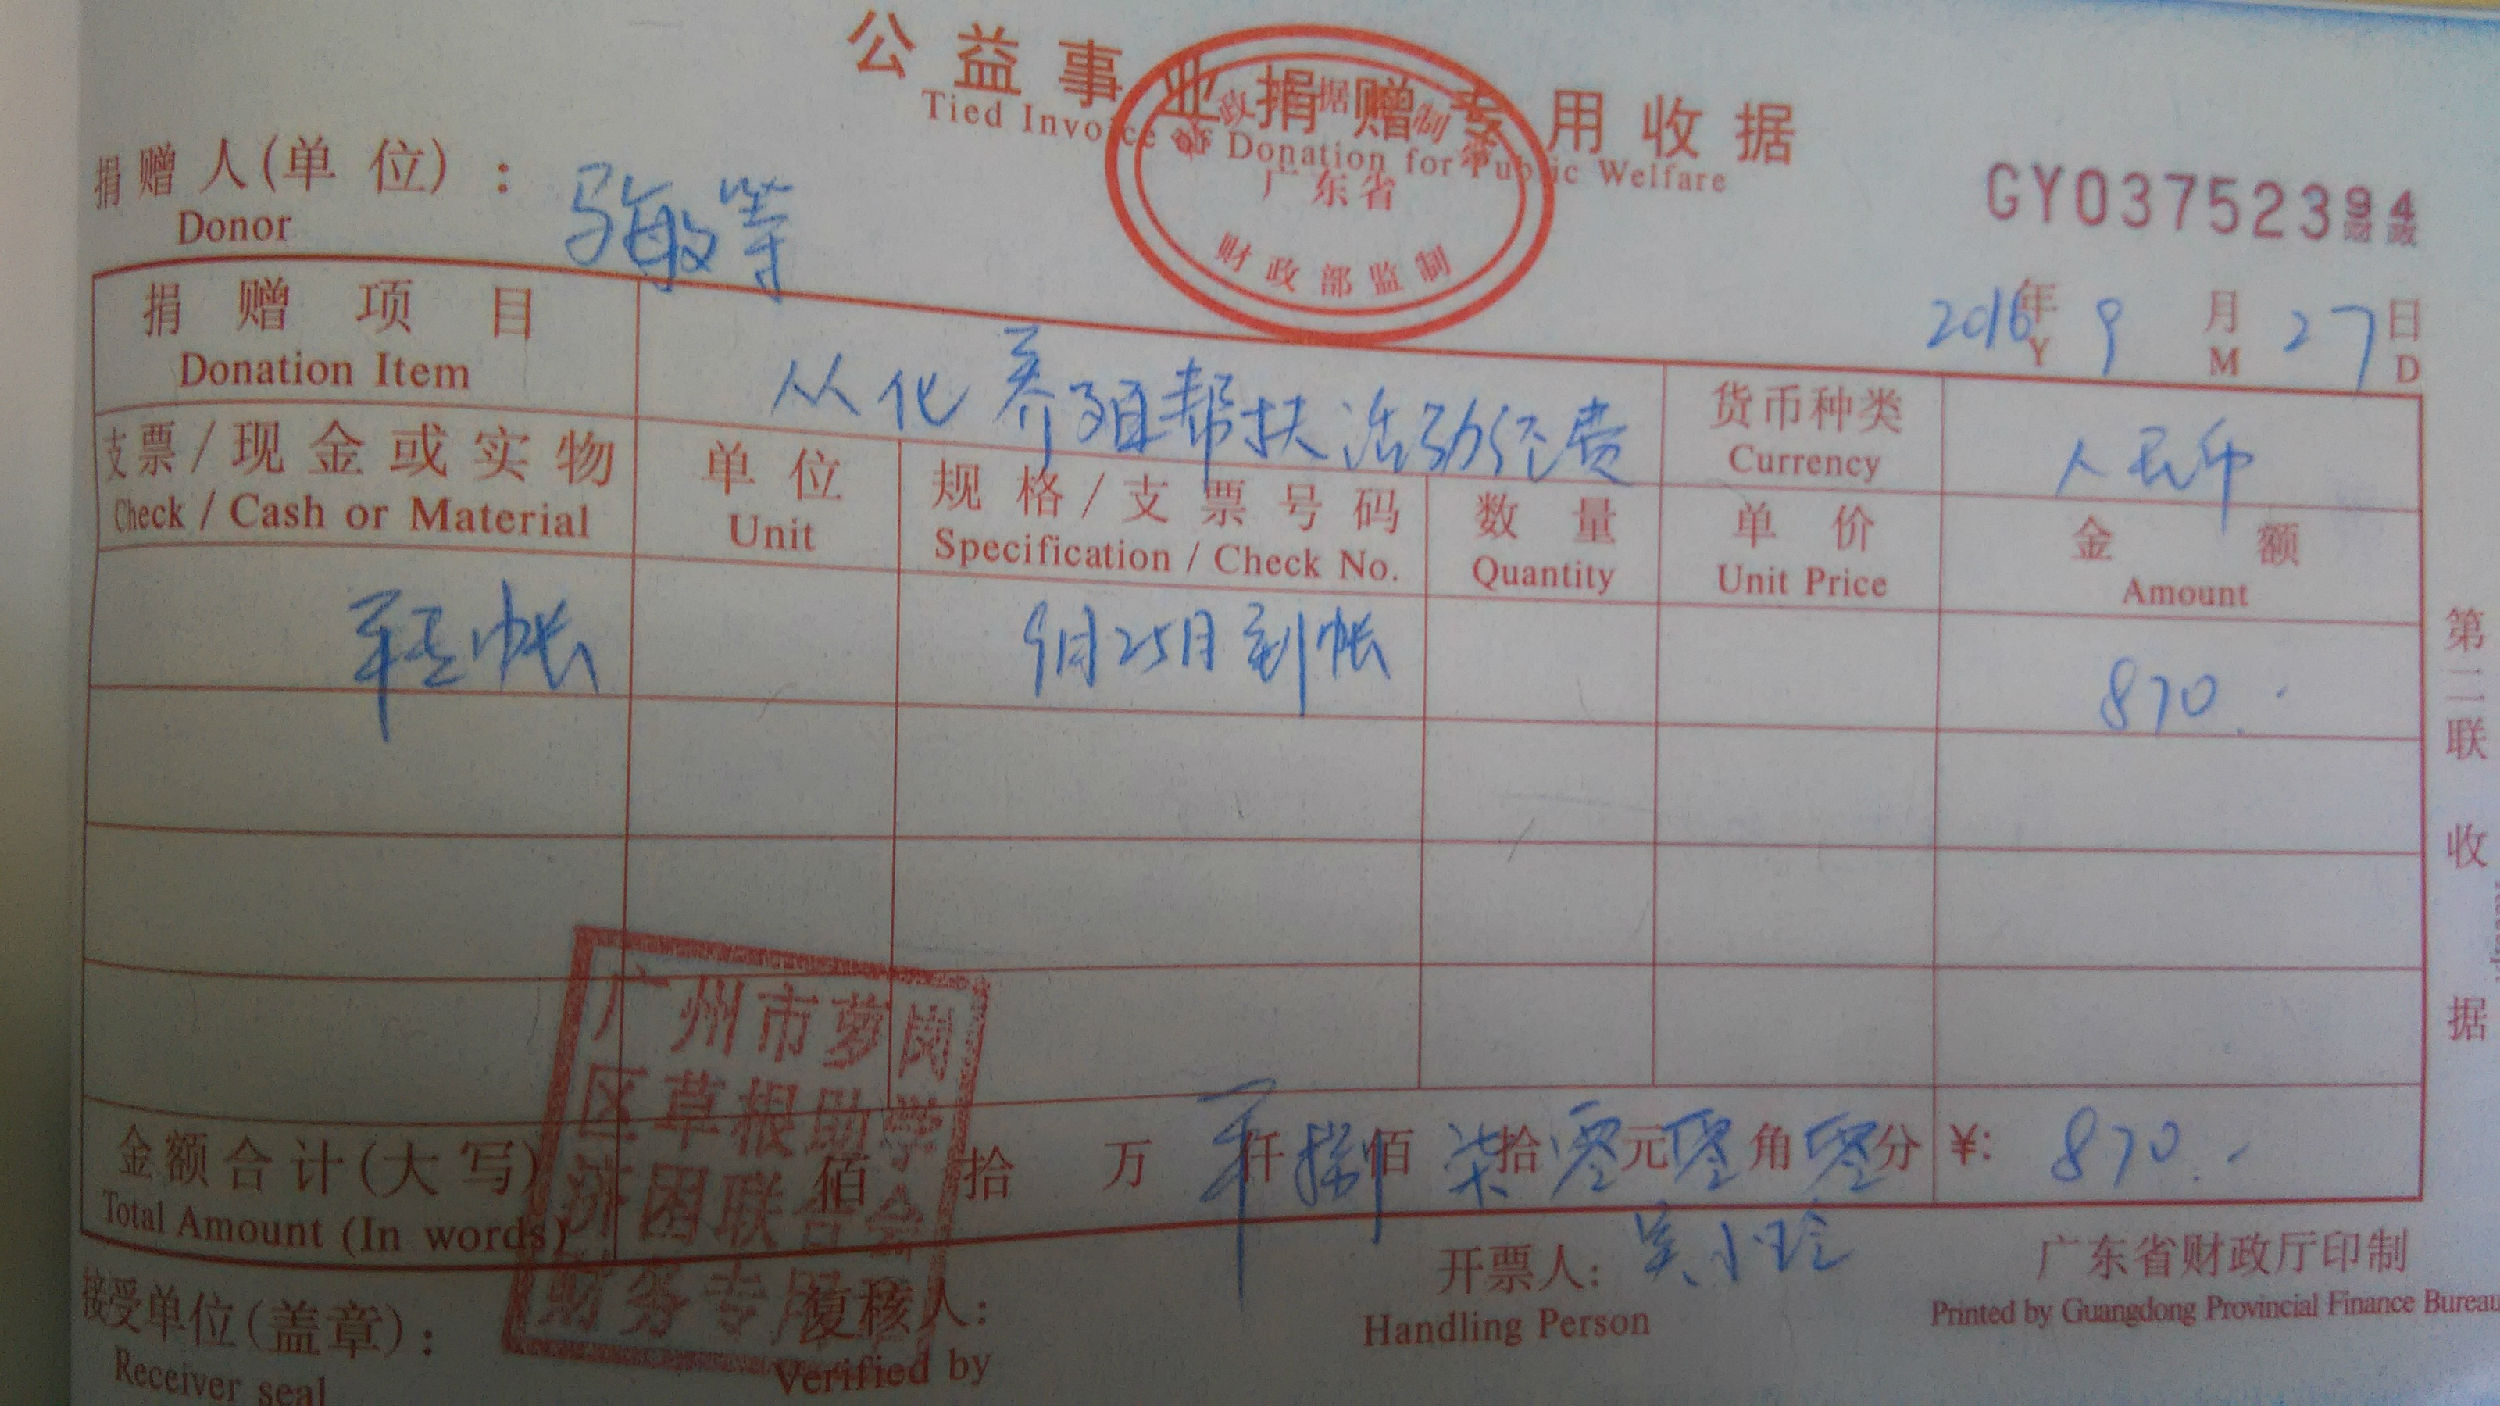 公益事业捐赠专用收据
Tied Invoice of Donation for Public Welfare
财政部监制
广东省
GY03752394
捐赠人(单位)：
Donor
2016年9月27日
Y M D
捐赠项目
Donation Item
从化养殖帮扶活动经费
货币种类
Currency
人民币
支票/现金或实物
Check / Cash or Material
单位
Unit
规格/支票号码
Specification / Check No.
数量
Quantity
单价
Unit Price
金额
Amount
9月25日到帐
870.-
第二联 收据
金额合计(大写)
Total Amount (In words)
佰 拾 万 仟捌佰柒拾零元零角零分
¥: 870.-
接受单位(盖章)：
Receiver seal
广州市萝岗
区草根助学
济困联合会
财务专用章
复核人:
Verified by
开票人: 吴小玲
Handling Person
广东省财政厅印制
Printed by Guangdong Provincial Finance Bureau